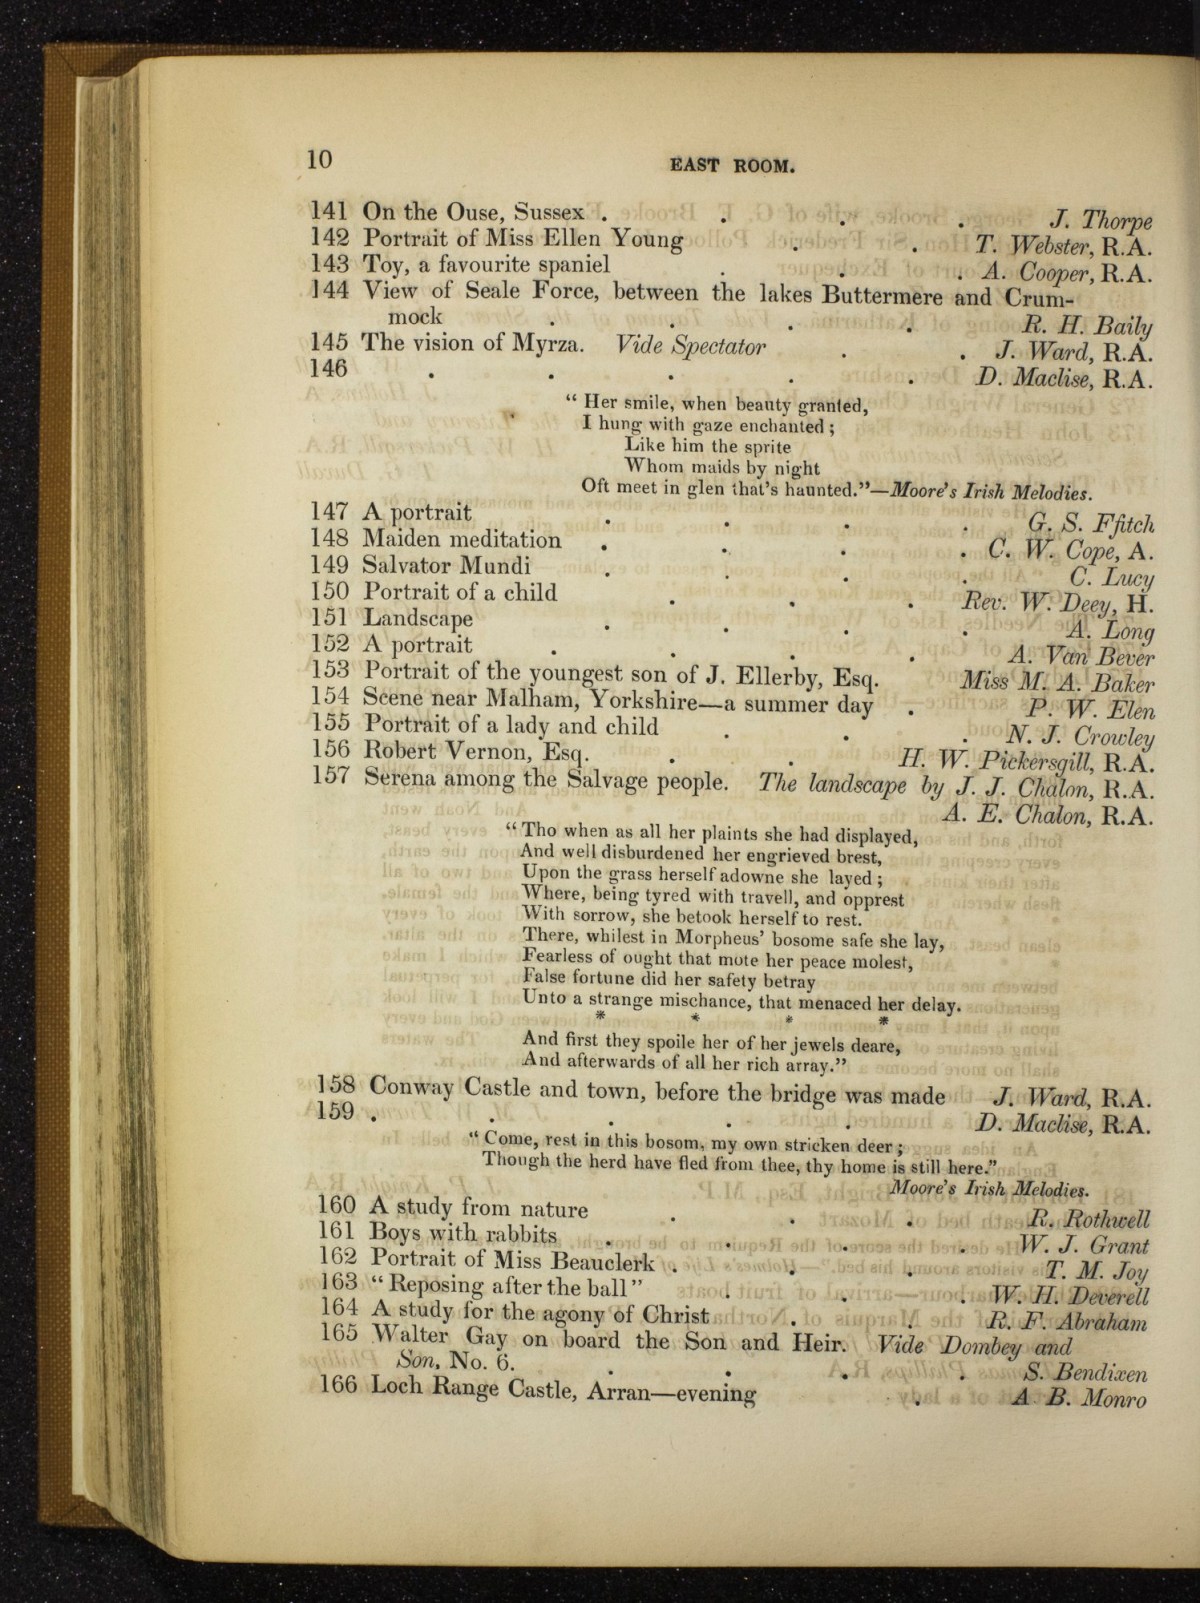 10
EAST ROOM.
141 On the Ouse, Sussex . . . . J. Thorpe
142 Portrait of Miss Ellen Young . . T. Webster, R.A.
143 Toy, a favourite spaniel . . . A. Cooper, R.A.
144 View of Seale Force, between the lakes Buttermere and Crum-
mock . . . . R. H. Baily
145 The vision of Myrza. Vide Spectator . . J. Ward, R.A.
146 . . . . . D. Maclise, R.A.
“ Her smile, when beauty granted,
I hung with gaze enchanted ;
Like him the sprite
Whom maids by night
Oft meet in glen that’s haunted.”—Moore’s Irish Melodies.
147 A portrait . . . . G. S. Ffitch
148 Maiden meditation . . . . C. W. Cope, A.
149 Salvator Mundi . . . . C. Lucy
150 Portrait of a child . . . Rev. W. Deey, H.
151 Landscape . . . . A. Long
152 A portrait . . . . A. Van Bever
153 Portrait of the youngest son of J. Ellerby, Esq. Miss M. A. Baker
154 Scene near Malham, Yorkshire—a summer day . P. W. Elen
155 Portrait of a lady and child . . . N. J. Crowley
156 Robert Vernon, Esq. . . H. W. Pickersgill, R.A.
157 Serena among the Salvage people. The landscape by J. J. Chalon, R.A.
A. E. Chalon, R.A.
“ Tho when as all her plaints she had displayed,
And well disburdened her engrieved brest,
Upon the grass herself adowne she layed ;
Where, being tyred with travell, and opprest
With sorrow, she betook herself to rest.
There, whilest in Morpheus’ bosome safe she lay,
Fearless of ought that mote her peace molest,
False fortune did her safety betray
Unto a strange mischance, that menaced her delay.
* * * *
And first they spoile her of her jewels deare,
And afterwards of all her rich array.”
158 Conway Castle and town, before the bridge was made J. Ward, R.A.
159 . . . . . D. Maclise, R.A.
“ Come, rest in this bosom, my own stricken deer ;
Though the herd have fled from thee, thy home is still here.”
Moore’s Irish Melodies.
160 A study from nature . . . R. Rothwell
161 Boys with rabbits . . . . W. J. Grant
162 Portrait of Miss Beauclerk . . . T. M. Joy
163 “ Reposing after the ball ” . . . W. H. Deverell
164 A study for the agony of Christ . . R. F. Abraham
165 Walter Gay on board the Son and Heir. Vide Dombey and
Son, No. 6. . . . . S. Bendixen
166 Loch Range Castle, Arran—evening . A B. Monro